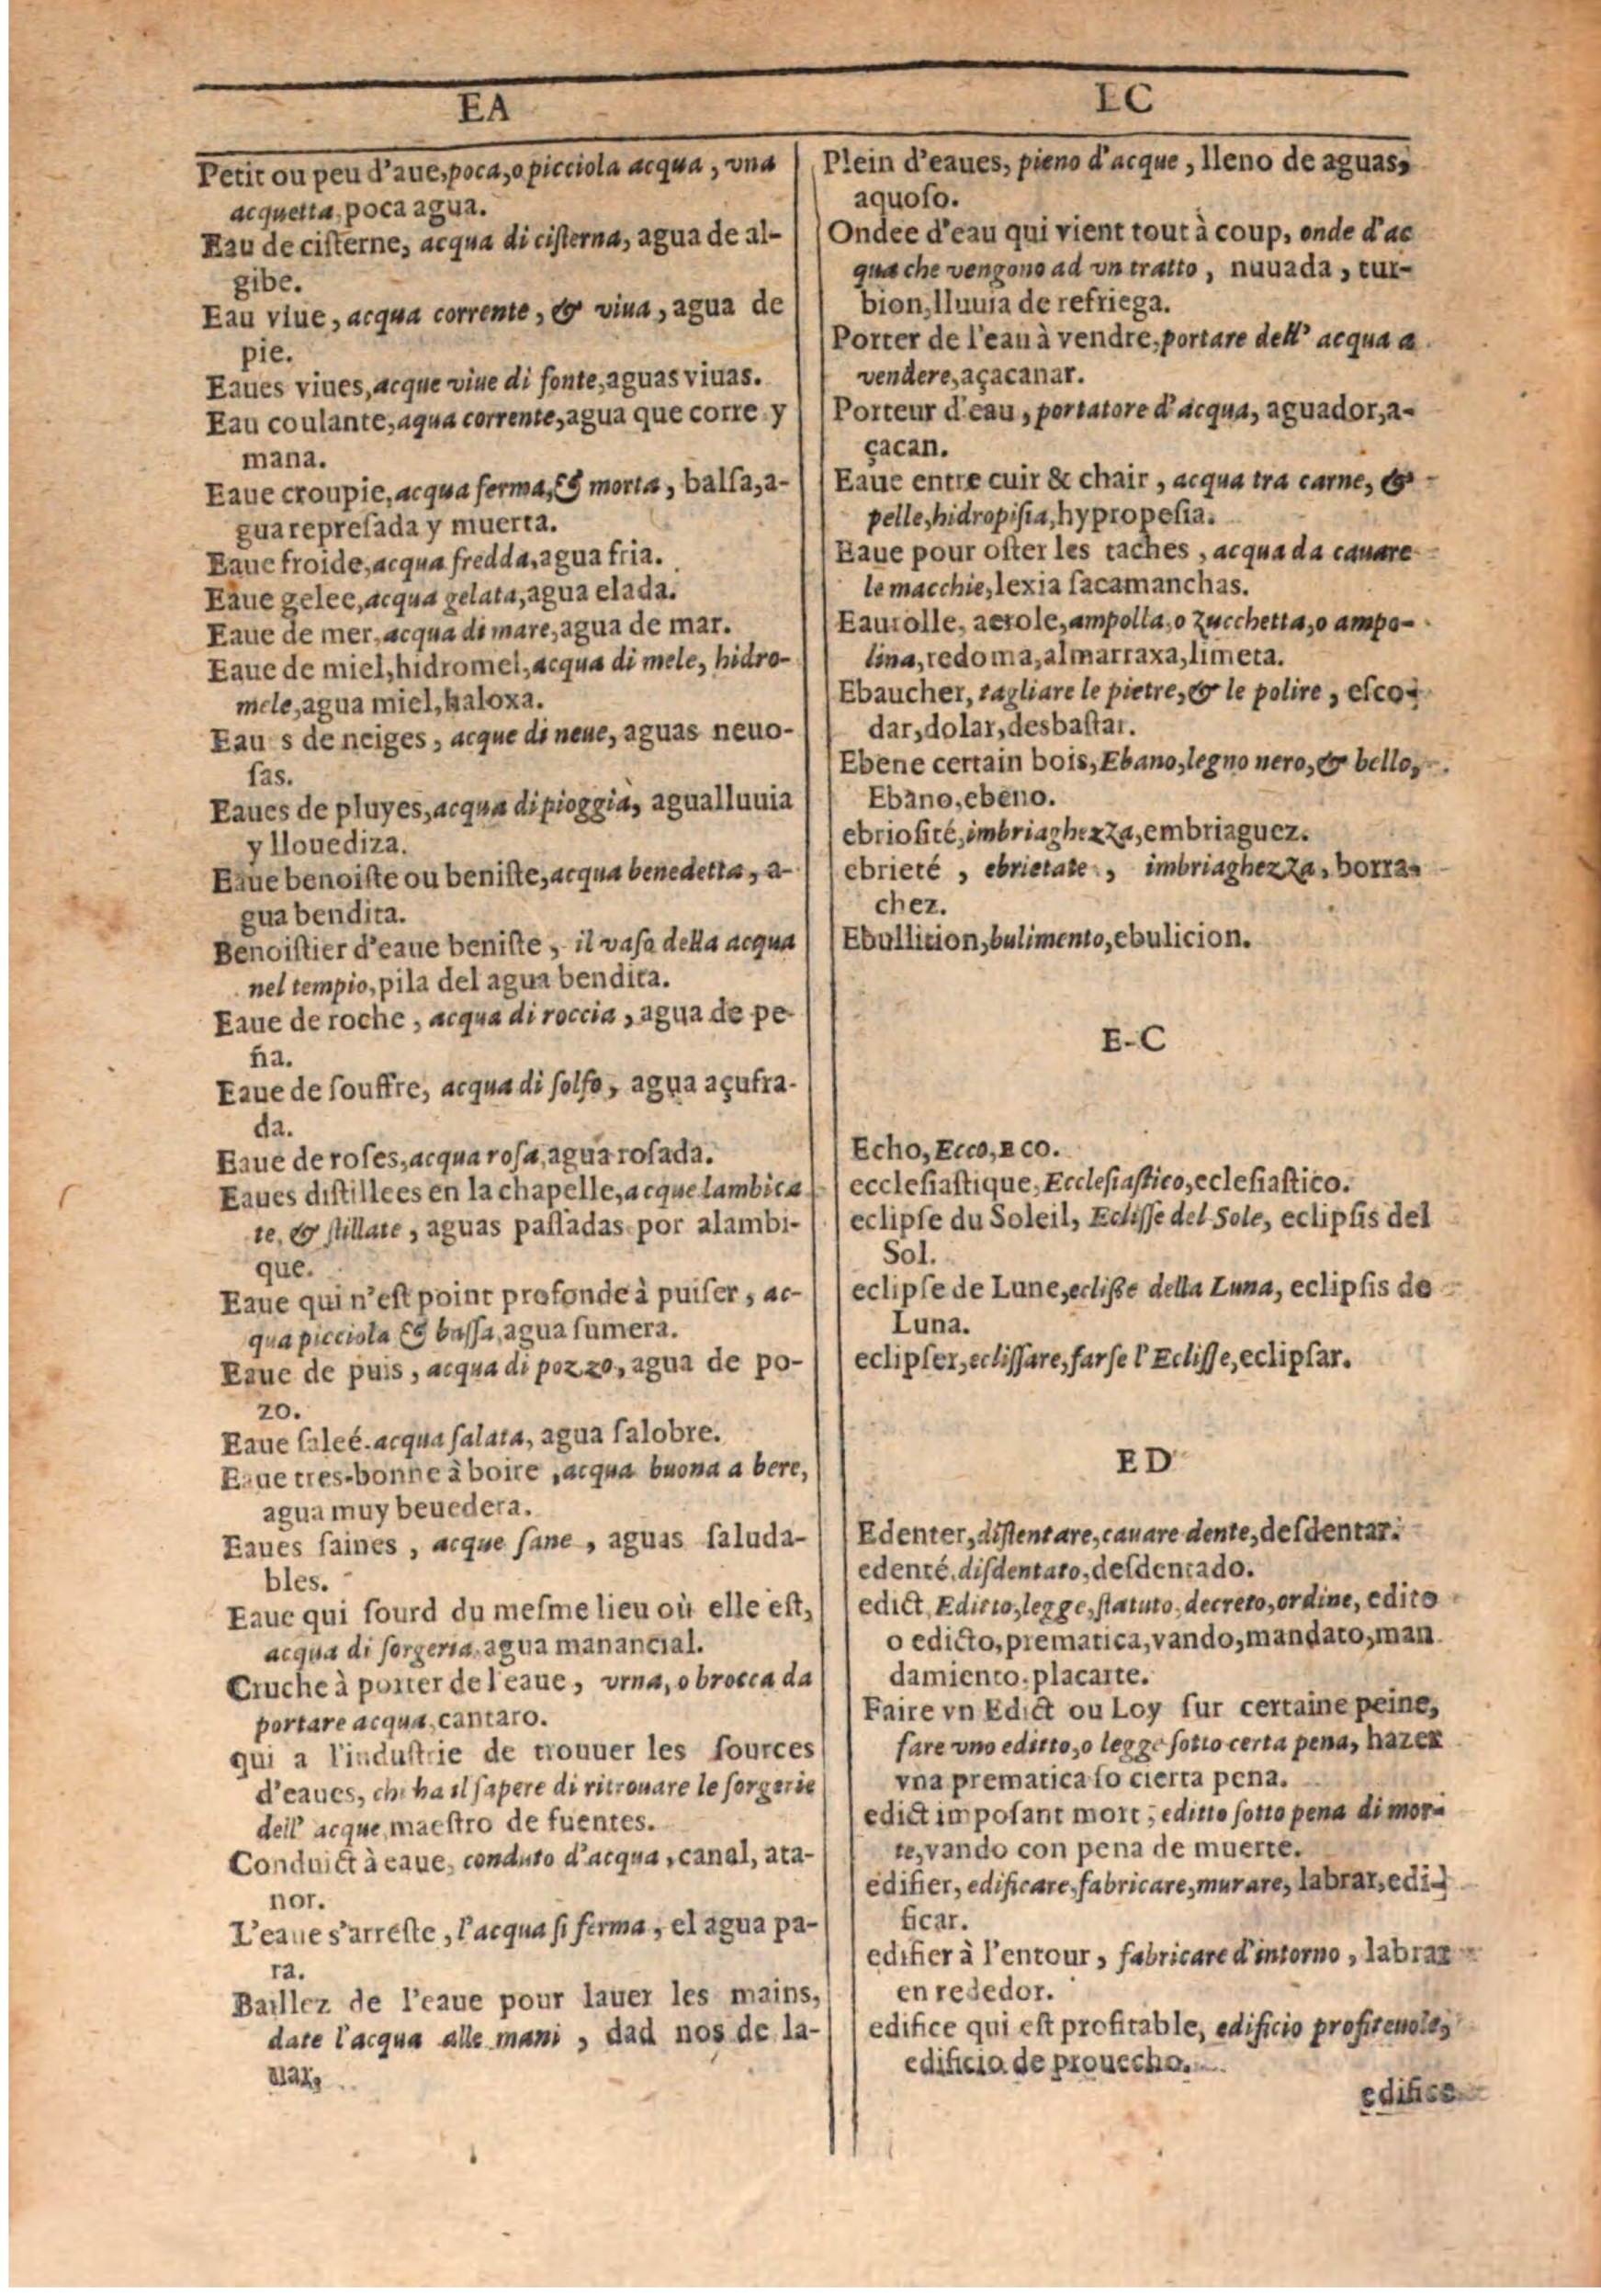 EA
EC
Petit ou peu d'aue, poca, o picciola acqua, vna
acquetta, poca agua.
Eau de ciſterne, acqua di ciſterna, agua de al-
gibe.
Eau viue, acqua corrente, & viua, agua de
pie.
Eaues viues, acque viue di fonte, aguas viuas.
Eau coulante, aqua corrente, agua que corre y
mana.
Eaue croupie, acqua ferma, & morta, balſa, a-
gua repreſada y muerta.
Eaue froide, acqua fredda, agua fria.
Eaue gelee, acqua gelata, agua elada.
Eaue de mer, acqua di mare, agua de mar.
Eaue de miel, hidromel, acqua di mele, hidro-
mele, agua miel, haloxa.
Eau s de neiges, acque di neue, aguas neuo-
ſas.
Eaues de pluyes, acqua di pioggia, agualluuia
y llouediza.
Eaue benoiſte ou beniſte, acqua benedetta, a-
gua bendita.
Benoiſtier d'eaue beniſte, il vaſo della acqua
nel tempio, pila del agua bendita.
Eaue de roche, acqua di roccia, agua de pe-
ña.
Eaue de ſouffre, acqua di ſolfo, agua açufra-
da.
Eaue de roſes, acqua roſa, agua roſada.
Eaues diſtillees en la chapelle, acque lambica
te, & ſtillate, aguas paſſadas por alambi-
que.
Eaue qui n'eſt point profonde à puiſer, ac-
qua picciola & baſſa, agua ſumera.
Eaue de puis, acqua di pozzo, agua de po-
zo.
Eaue ſaleé. acqua ſalata, agua ſalobre.
Eaue tres-bonne à boire, acqua buona a bere,
agua muy beuedera.
Eaues ſaines, acque ſane, aguas ſaluda-
bles.
Eaue qui ſourd du meſme lieu où elle eſt,
acqua di ſorgeria, agua manancial.
Cruche à porter de l'eaue, vrna, o brocca da
portare acqua, cantaro.
qui a l'induſtrie de trouuer les ſources
d'eaues, chi ha il ſapere di ritrouare le ſorgerie
dell' acque, maeſtro de fuentes.
Conduict à eaue, conduto d'acqua, canal, ata-
nor.
L'eaue s'arreſte, l'acqua ſi ferma, el agua pa-
ra.
Baillez de l'eaue pour lauer les mains,
date l'acqua alle mani, dad nos de la-
uar,
Plein d'eaues, pieno d'acque, lleno de aguas,
aquoſo.
Ondee d'eau qui vient tout à coup, onde d'ac
qua che vengono ad vn tratto, nuuada, tur-
bion, lluuia de refriega.
Porter de l'eau à vendre, portare dell' acqua a
vendere, açacanar.
Porteur d'eau, portatore d'acqua, aguador, a-
çacan.
Eaue entre cuir & chair, acqua tra carne, &
pelle, hidropiſia, hypropeſia.
Eaue pour oſter les taches, acqua da cauare
le macchie, lexia ſacamanchas.
Eaurolle, aerole, ampolla, o zucchetta, o ampo-
lina, redoma, almarraxa, limeta.
Ebaucher, tagliare le pietre, & le polire, eſco-
dar, dolar, desbaſtar.
Ebene certain bois, Ebano, legno nero, & bello,
Ebano, ebeno.
ebrioſité, imbriaghezza, embriaguez.
ebrieté, ebrietate, imbriaghezza, borra-
chez.
Ebullition, bulimento, ebulicion.
E-C
Echo, Ecco, Eco.
eccleſiaſtique, Eccleſiaſtico, ecleſiaſtico.
eclipſe du Soleil, Ecliſſe del Sole, eclipſis del
Sol.
eclipſe de Lune, ecliſſe della Luna, eclipſis de
Luna.
eclipſer, ecliſſare, farſe l'Ecliſſe, eclipſar.
ED
Edenter, diſtentare, cauare dente, deſdentar.
edenté, diſdentato, deſdentado.
edict, Editto, legge, ſtatuto, decreto, ordine, edito
o edicto, prematica, vando, mandato, man
damiento, placarte.
Faire vn Edict ou Loy ſur certaine peine,
fare vno editto, o legge ſotto certa pena, hazer
vna prematica ſo cierta pena.
edict impoſant mort, editto ſotto pena di mor-
te, vando con pena de muerte.
edifier, edificare, fabricare, murare, labrar, edi-
ficar.
edifier à l'entour, fabricare d'intorno, labrar
en rededor.
edifice qui eſt profitable, edificio profiteuole,
edificio de prouecho.
edifice